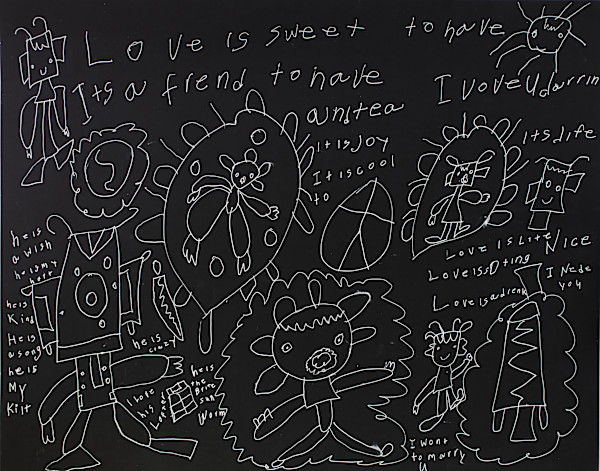 Love is sweet to have
Its a frend to have
I vove U darrin
anutea
it is Joy
It is cool
to
its life
Love is Life
Nice
Love iss D ting
I Nede
you
Love is a drenk
he is
a wish
he is my
hart
he is
Kind
He is
a song
he is
My
Kilt
he is
crazy
I love
his
Love
he is
the
Brite
sun
Worm
I wont
to marry
U